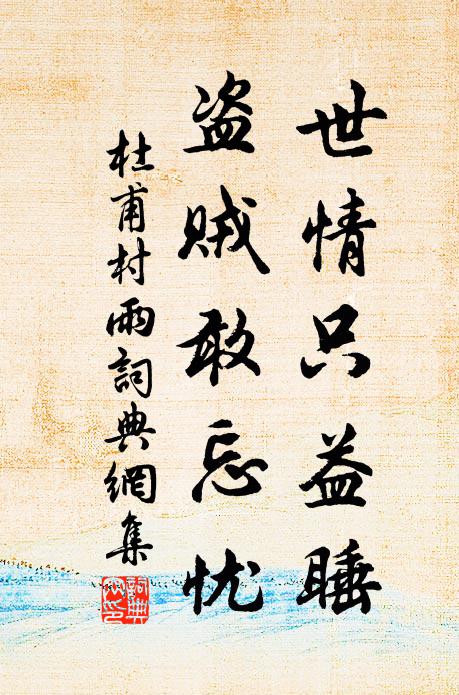 世情只益睡
盗贼敢忘忧
杜甫村雨詞典網集